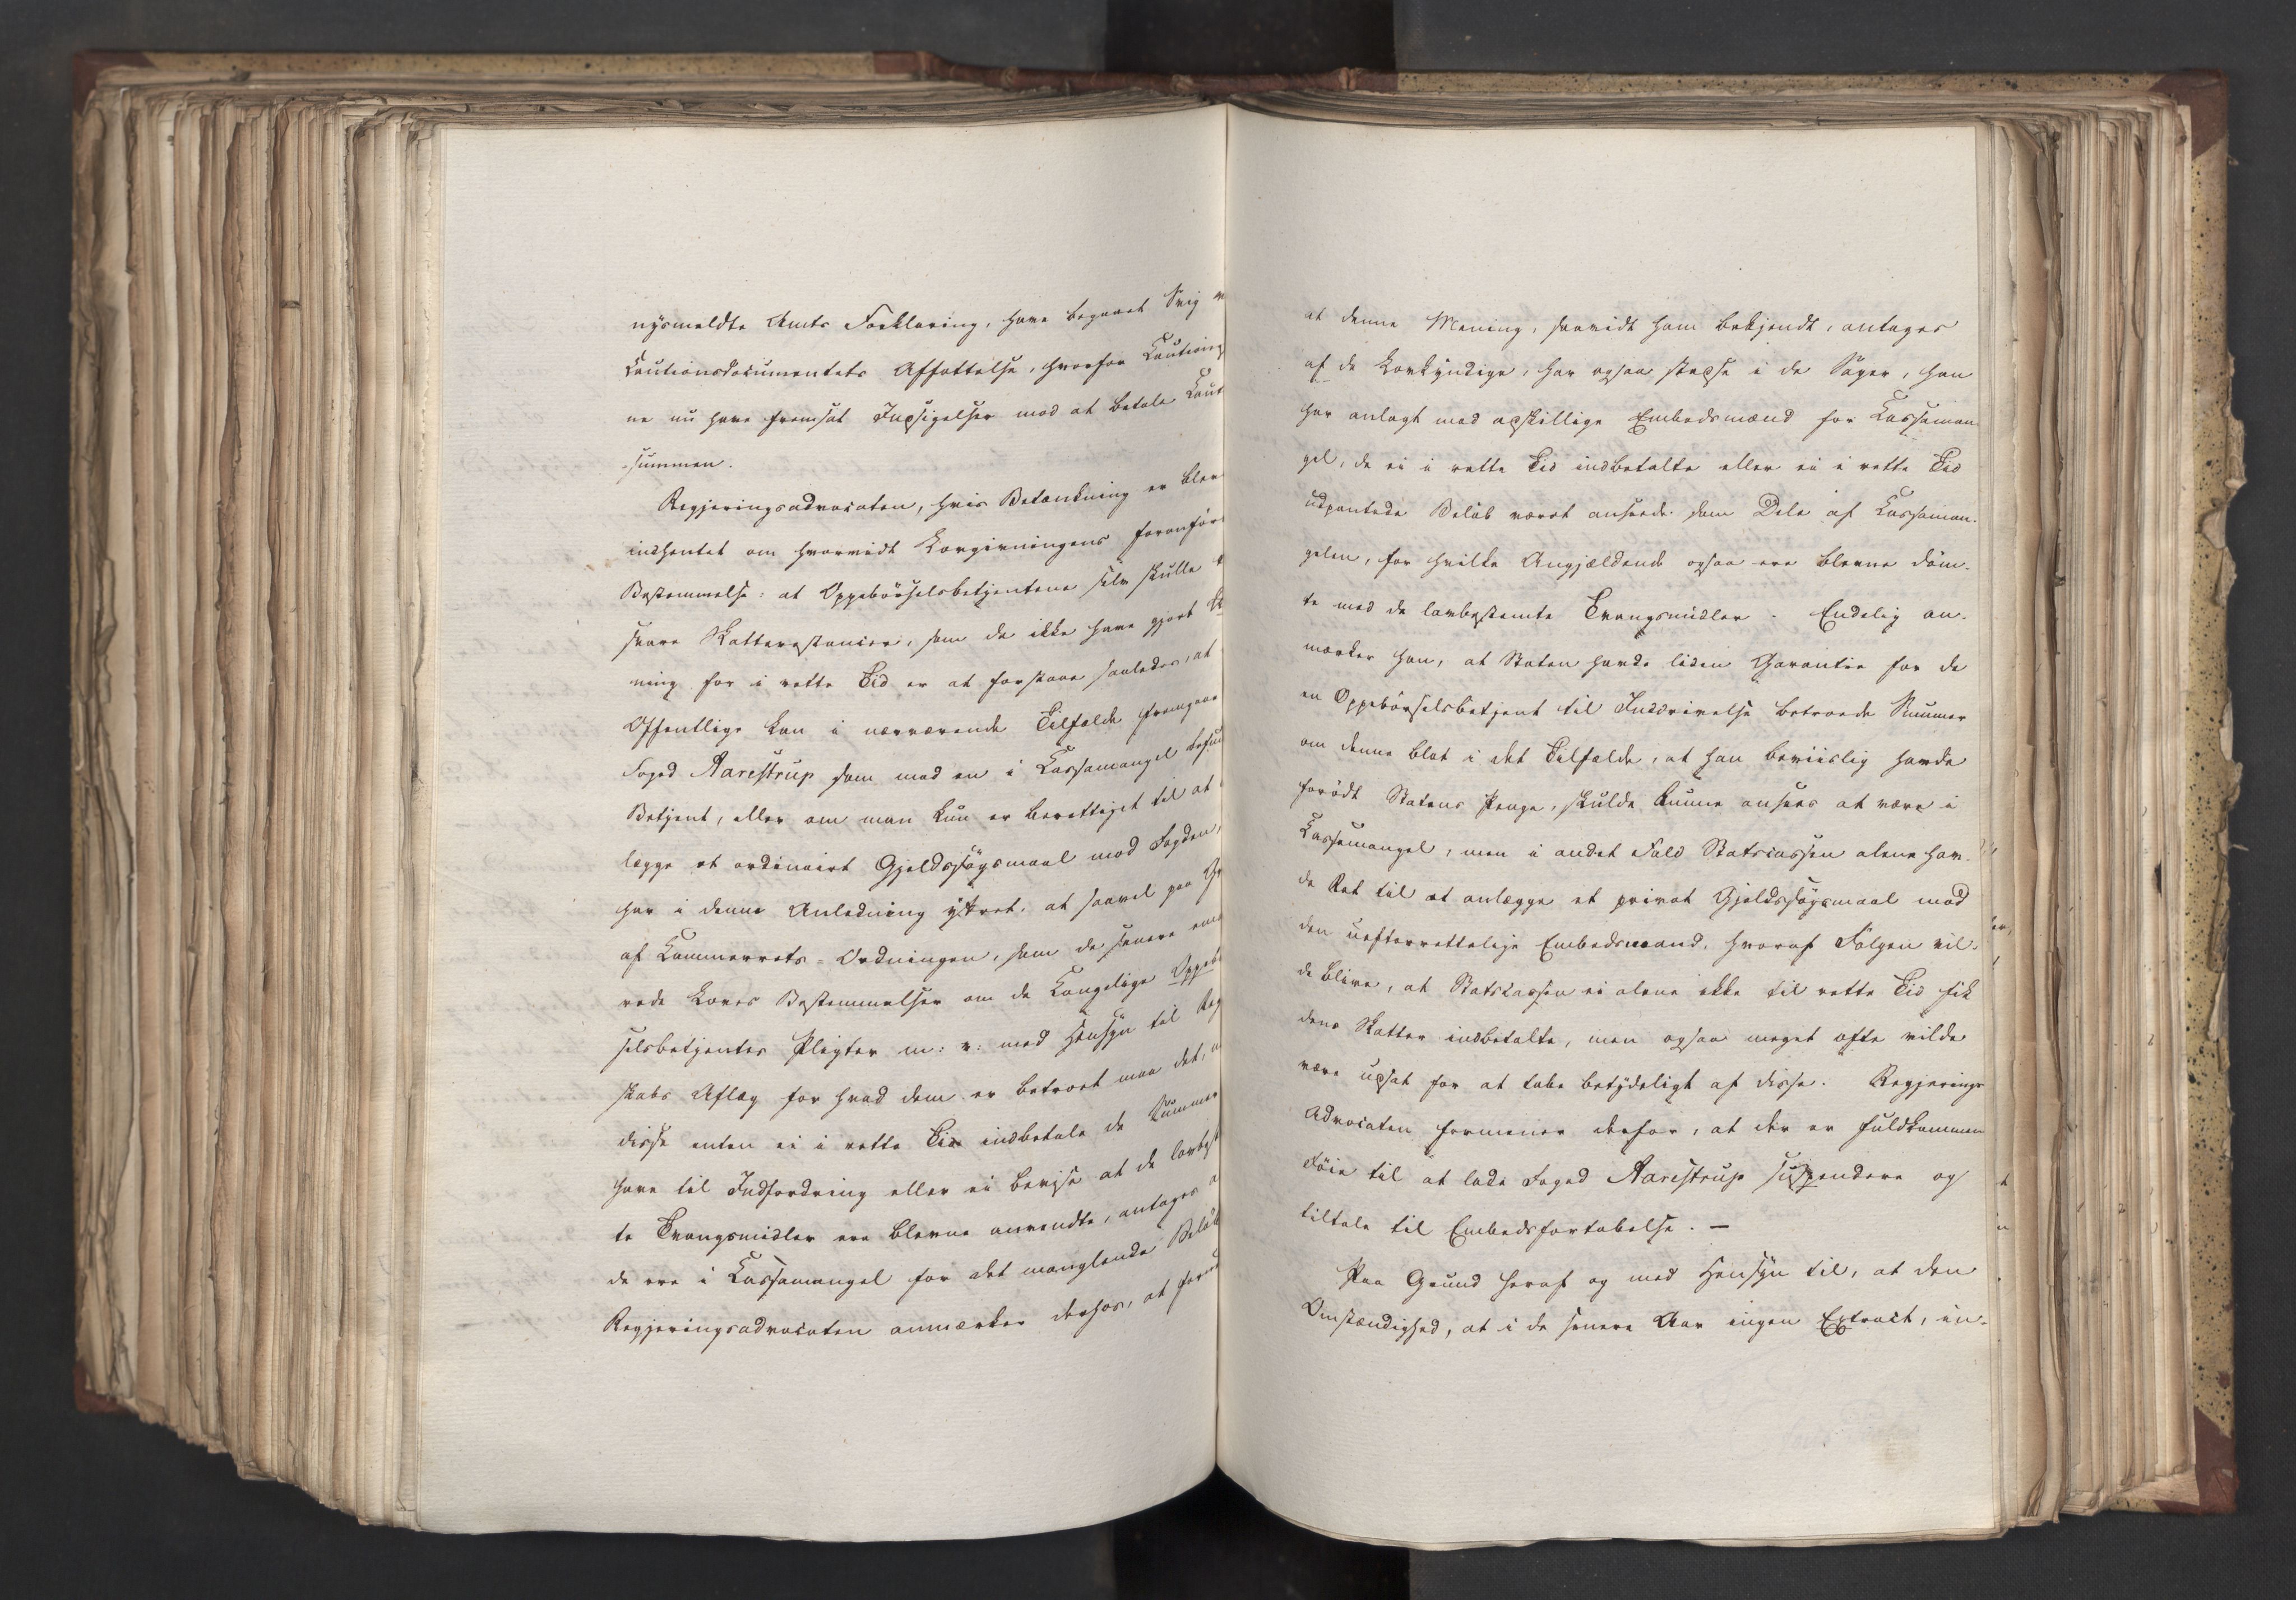 nysmeldte Amts Forklaring, have begaaet Svig v
Cautionsdocumentets Affattelse, hvorfor Cautioni
ne nu have fremsat Indsigelser mod at betale Caut
summen.
Regjeringsadvocaten, hvis Betænkning er blev
indhentet om hvorvidt Lovgivningens foranför
Bestemmelse: at Oppebörselsbetjentene selv skulle
svare Skatterestancer, som de ikke have gjort
ning for i rette Tid er at forstaae saaledes, at
Offentlige kan i nærværende Tilfælde fremgaae
Foged Aarestrup som mod en i Kassemangel befun
Betjent, eller om man kun er berettiget til at
lægge et ordinairt Gjeldssögsmaal mod Fogden,
har i denne Anledning yttret, at saavel paa Gr
af Kammerrets-Ordningen, som de senere em
rede Loves Bestemmelser om de Kongelige Oppeb
selsbetjentes Pligter m: v: med Hensyn til Reg
skabs Aflæg for hvad dem er betroet maa det,
disse enten ei i rette Tid indbetale de Summer
have til Indfordring eller ei bevise at de lovbest
te Tvangsmidler ere blevne anvendte, antages a
de ere i Kassemangel for det manglende Belöb
Regjeringsadvocaten anmærker derhos, at
at denne Mening, saavidt ham bekjendt, antages
af de Lovkyndige, har ogsaa stedse i de Sager, han
har anlagt mod adskillige Embedsmænd for Kasseman
gel, de ei i rette Tid indbetalte eller ei i rette Tid
udpantede Belöb været ansete som Dele af Kasseman-
gelen, for hvilke Angjældende ogsaa ere blevne döm-
te med de lovbestemte Tvangsmidler. Endelig an-
mærker han, at Staten havde liden Garantie for de
en Oppebörselsbetjent til Inddrivelse betroede Summer
om denne blot i det Tilfælde, at han beviislig havde
forödt Statens Penge, skulde kunne ansees at være i
Kassemangel, men i andet Fald Statscassen alene hav-
de Ret til at anlægge et privat Gjeldssögsmaal mod
den uefterrettelige Embedsmand, hvoraf Fölgen vil-
de blive, at Statskassen ei alene ikke til rette Tid fik
dens Skatter indbetalte, men ogsaa meget ofte vilde
være udsat for at tabe betydeligt af disse. Regjerings
Advocaten formener derfor, at der er fuldkommen
Föie til at lade Foged Aarestrup suspendere og
tiltale til Embedsfortabelse. —
Paa Grund heraf og med Hensyn til, at den
Omstændighed, at i de senere Aar ingen Extract, in-